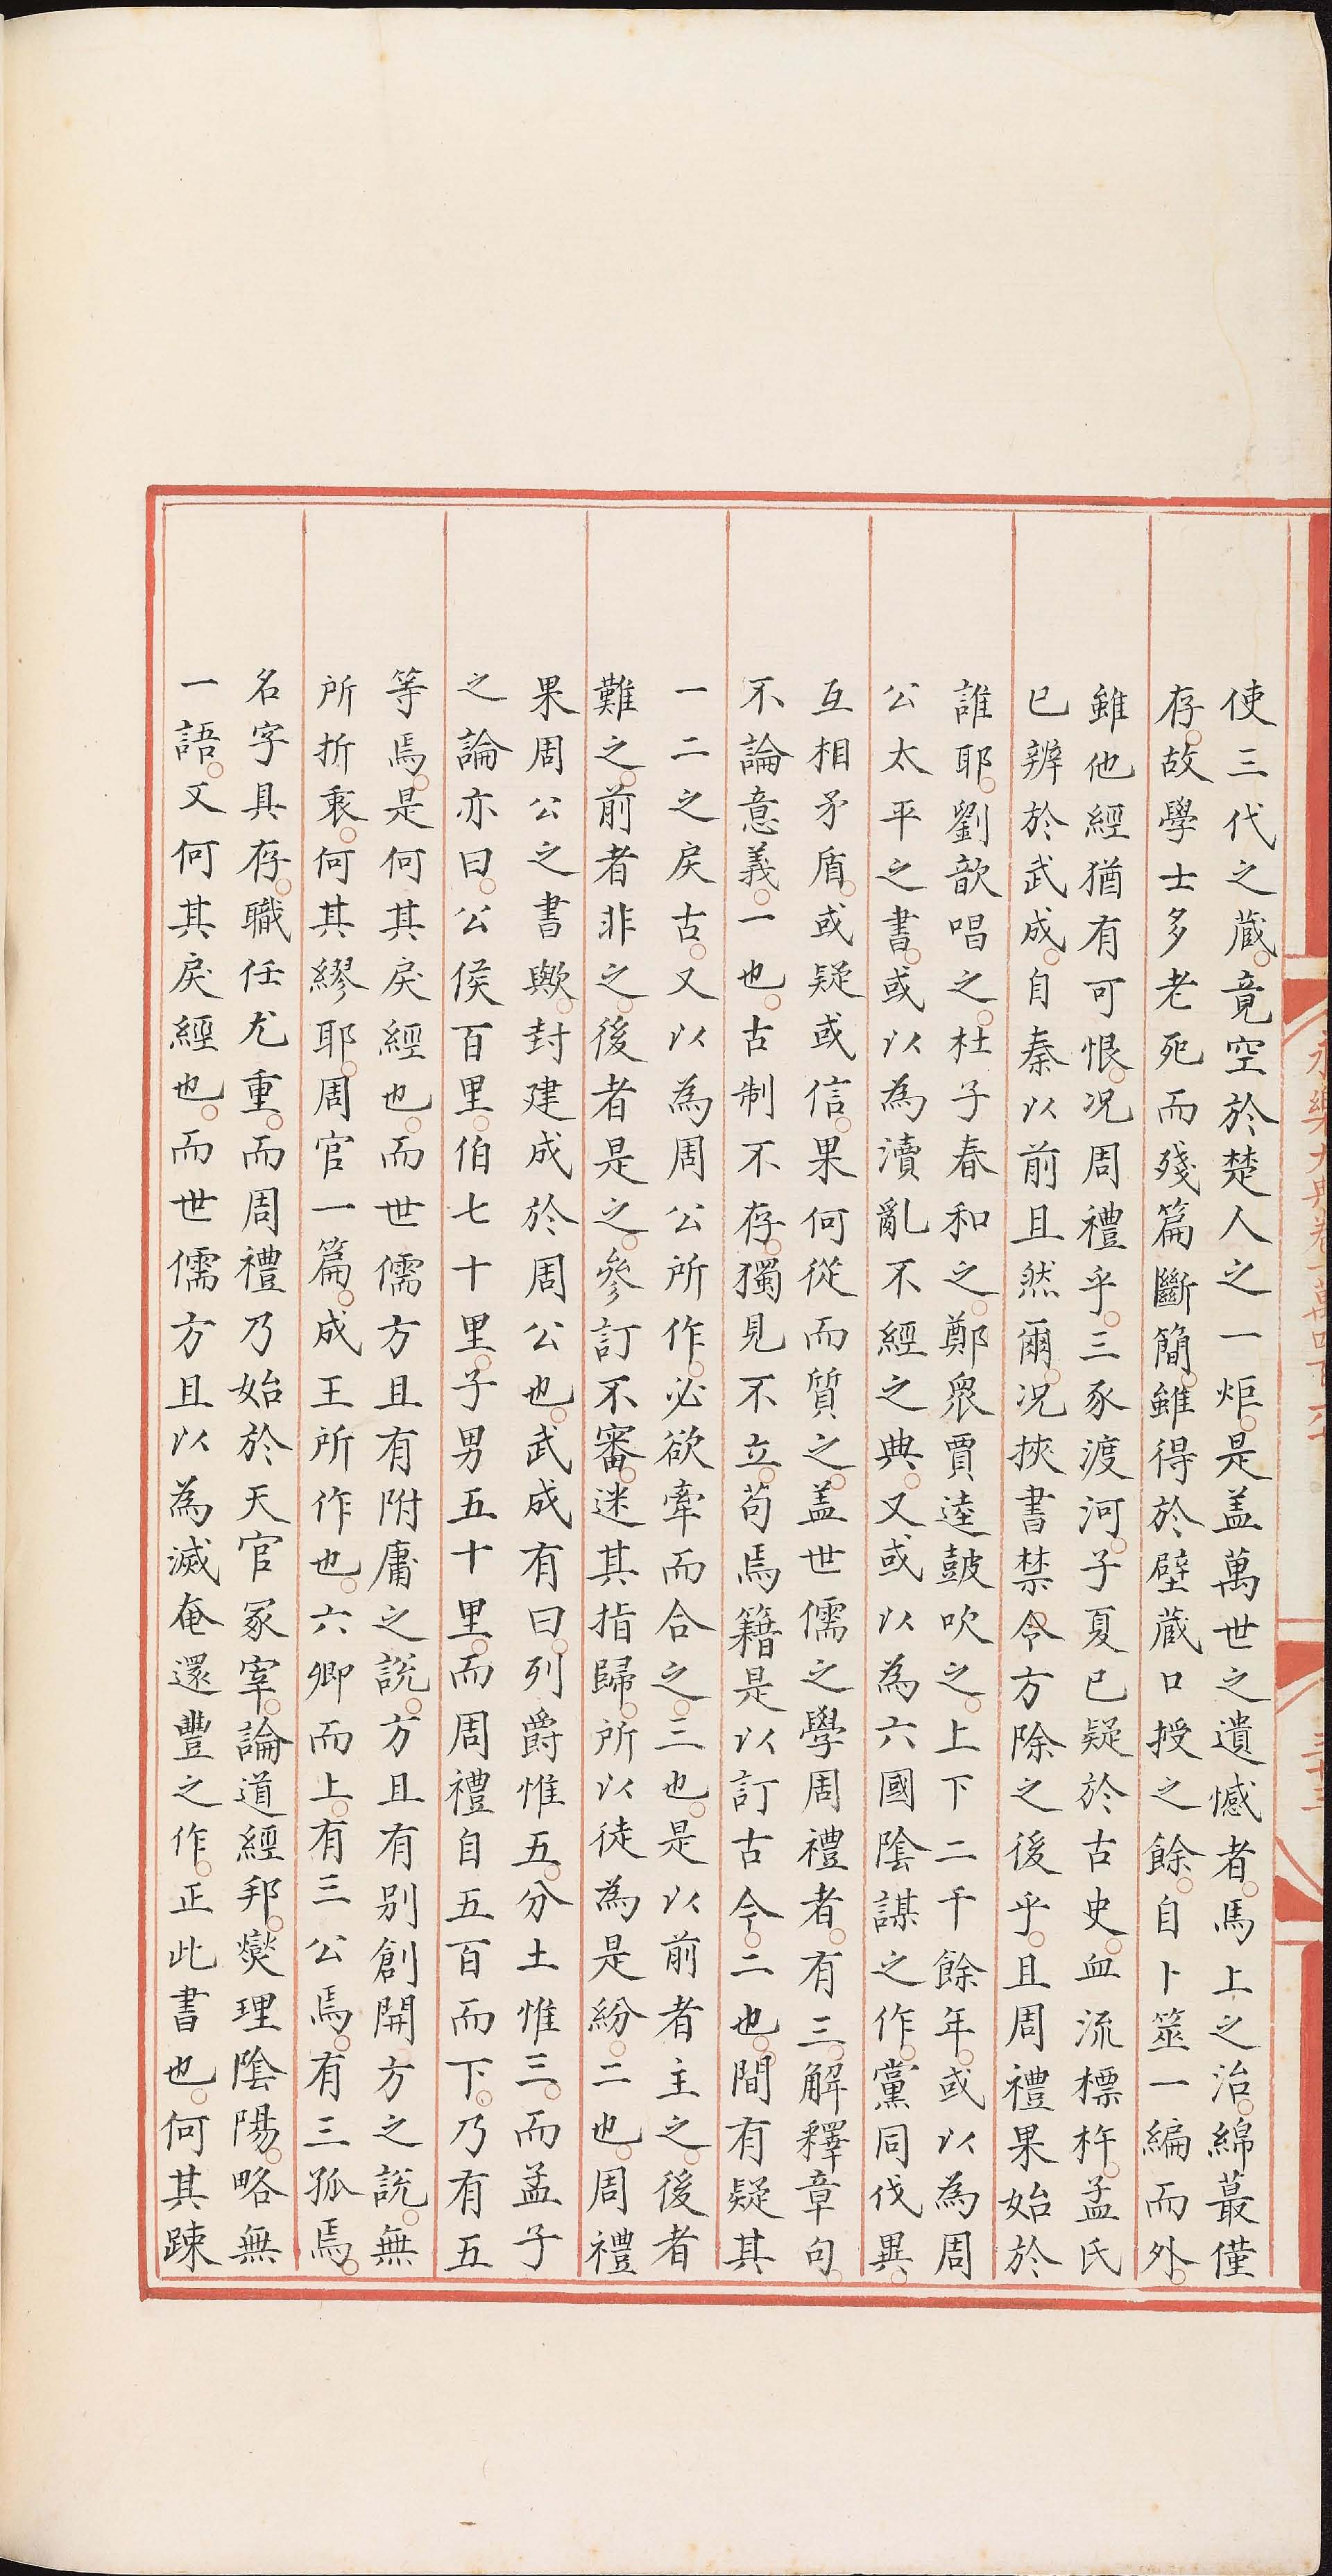 使三代之蔵。竟空於楚人之一炬。是盖萬世之遺憾者。馬上之治。綿蕞僅
存。故學士多老死而殘篇斷簡。雖得於壁蔵口授之餘。自卜筮一編而外。
雖他經猶有可恨。况周禮乎。三豕渡河。子夏已疑於古史。血流標杵。孟氏
已辨於武成。自秦以前且然爾。况挾書禁令方除之後乎。且周禮果始於
誰耶。劉歆唱之。杜子春和之。鄭眾賈逵鼓吹之。上下二千餘年。或以為周
公太平之書。或以為瀆亂不經之典。又或以為六國陰謀之作。黨同伐異。
互相矛盾。或疑或信。果何從而質之。盖世儒之學周禮者。有三。解釋章句。
不論意義。一也。古制不存。獨見不立。苟焉籍是以訂古今。二也。間有疑其
一二之戾古。又以為周公所作。必欲牽而合之。三也。是以前者主之。後者
難之。前者非之。後者是之。參訂不審。迷其指歸。所以徒為是紛。二也。周禮
果周公之書歟。封建成於周公也。武成有曰。列爵惟五。分土惟三。而孟子
之論亦曰。公侯百里。伯七十里。子男五十里。而周禮自五百而下。乃有五
等焉。是何其戾經也。而世儒方且有附庸之說。方且有别創開方之說。無
所折衷。何其繆耶。周官一篇。成王所作也。六卿而上。有三公焉。有三孤焉。
名字具存。職任尤重。而周禮乃始於天官冢宰。論道經邦。燮理陰陽。略無
一語。又何其戾經也。而世儒方且以為滅奄還豐之作。正此書也。何其踈